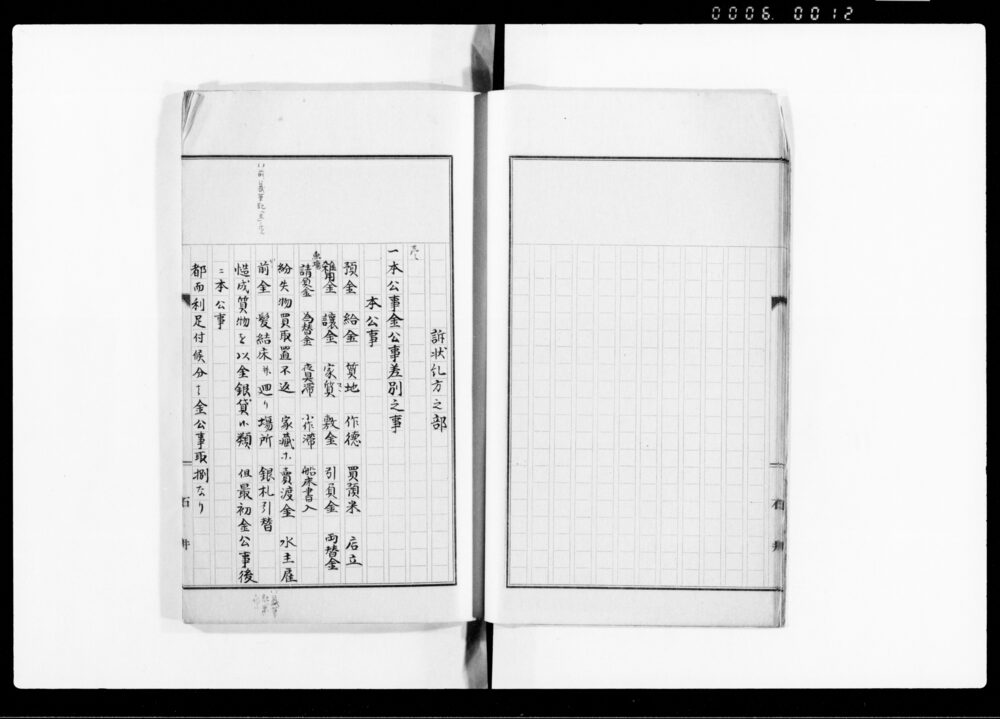 0006. 0012
訴状糺方之部
一本公事金公事差別之事
本公事
預金 給金 質地 作徳 買預米 店立
雑用金 譲金 家質 敷金 引負金 両替金
請負金 為替金 夜具滞 小作滞 船床書入
紛失物買取置不返 家蔵ホ賣渡金 水主雇
前金 髪結床并廻り場所 銀札引替
慥成質物を以金銀貸候類 但最初金公事後
ニ本公事
都而利足付候分ハ金公事取捌なり
石井
石井